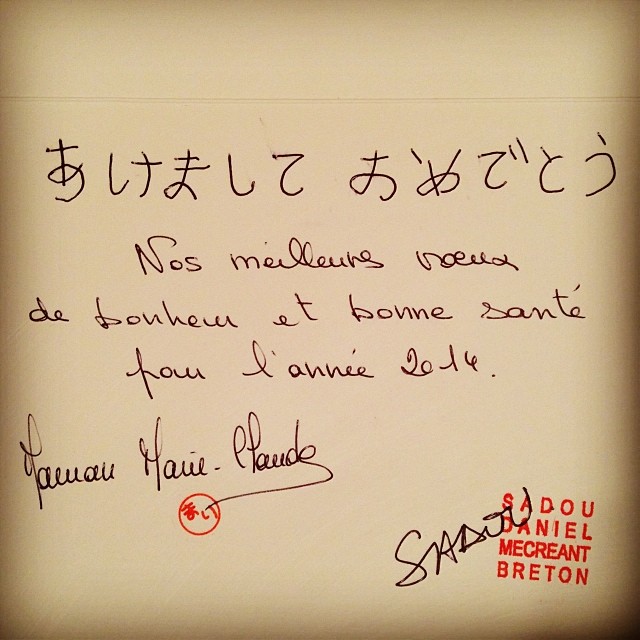 あけまして おめでとう
Nos meilleurs vœux
de bonheur et bonne santé
pour l'année 2014.
Maman Marie-Claude
まい
SADOU
SADOU
DANIEL
MECREANT
BRETON